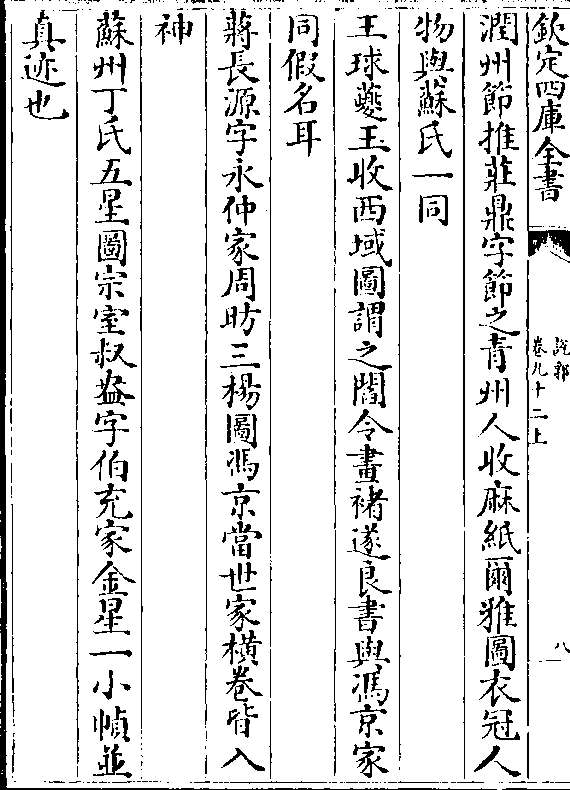 欽定四庫全書
說郛
卷九十二上
八
潤州節推莊鼎字節之青州人收麻紙爾雅圖衣冠人
物與蘇氏一同
王球夔玉收西域圖謂之閻令畫褚遂良書與馮京家
同假名耳
蔣長源字永仲家周昉三楊圖馮京當世家橫卷皆入
神
蘇州丁氏五星圖宗室叔盎字伯充家金星一小幀並
真迹也